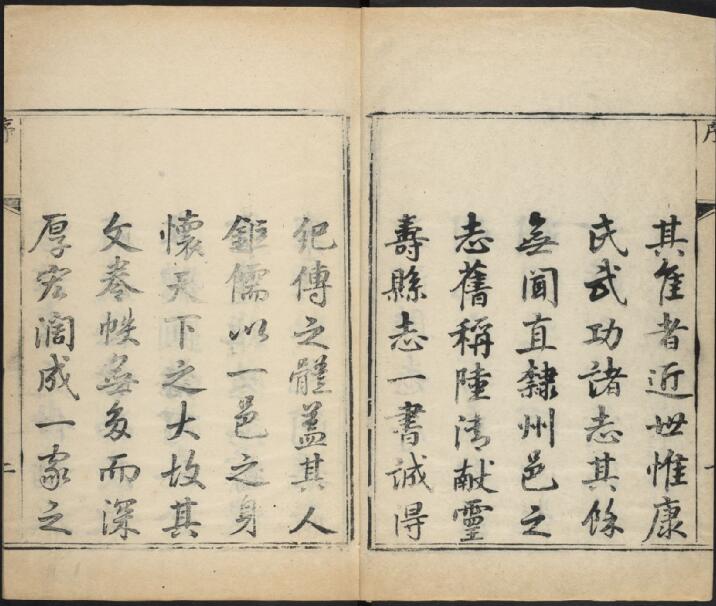 序
其雋者近世惟康
氏武功諸志其餘
無聞直隸州邑之
志舊稱陸清献靈
壽縣志一書誠得
紀傳之體蓋其人
鉅儒以一邑之身
懷天下之大故其
文卷帙無多而深
厚宏濶成一家之
序
二